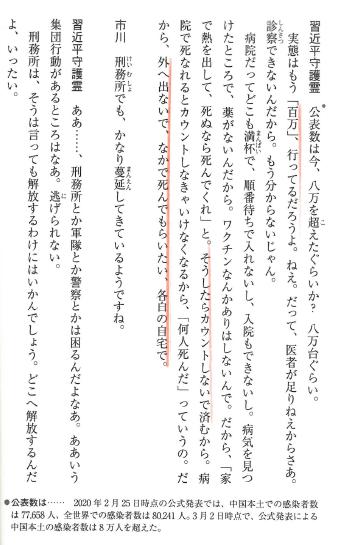 習近平守護霊　公表数は今、八万を超えたぐらいか？　八万台ぐらい。
実態はもう「百万」、行ってるだろうよ。ねえ。だって、医者が足りねえからさあ。
診察できないんだから。もう分からないじゃん。
病院だってどこも満杯で、順番待ちで入れないし、入院もできないし。病気を見つ
けたところで、薬がないんだから。ワクチンなんかありはしないんで。だから、「家
で熱を出して、死ぬなら死んでくれ」と。そうしたらカウントしないで済むから。病
院で死なれるとカウントしなきゃいけなくなるから、「何人死んだ」っていうの。だ
から、外へ出ないで、なかで死んでもらいたい、各自の自宅で。
市川　刑務所でも、かなり蔓延してきているようですね。
習近平守護霊　ああ……、刑務所とか軍隊とか警察とかは困るんだよなあ。ああいう
集団行動があるところはなあ。逃げられない。
刑務所は、そうは言っても解放するわけにはいかんでしょう。どこへ解放するんだ
よ、いったい。
●公表数は…… 2020年2月25日時点の公式発表では、中国本土での感染者数
は77,658人、全世界での感染者数は80,241人。3月2日時点で、公式発表による
中国本土の感染者数は8万人を超えた。